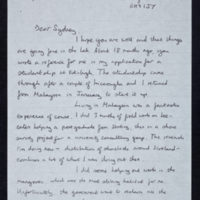 GH3 1SY
Dear Sydney
I hope you are well and that things
are going fine in the lab. About 18 months ago you
wrote a reference for me in my application for a
studentship at Edinburgh. The studentship came
through after a couple of and I returned
from Malaysia in January to start it up.
Living in Malaysia was a fantastic
experience of course. I did 3 months of field work on bee-
eaters helping a postgraduate from Stirling, then did a shore
survey project for a university consulting group. The research
I'm doing here - distribution of shorebirds around Scotland -
continues a lot of what I was doing out there
I did some helping out work in the
mangroves which was the most exciting habitat for me.
Unfortunately the government used to reclaim all the